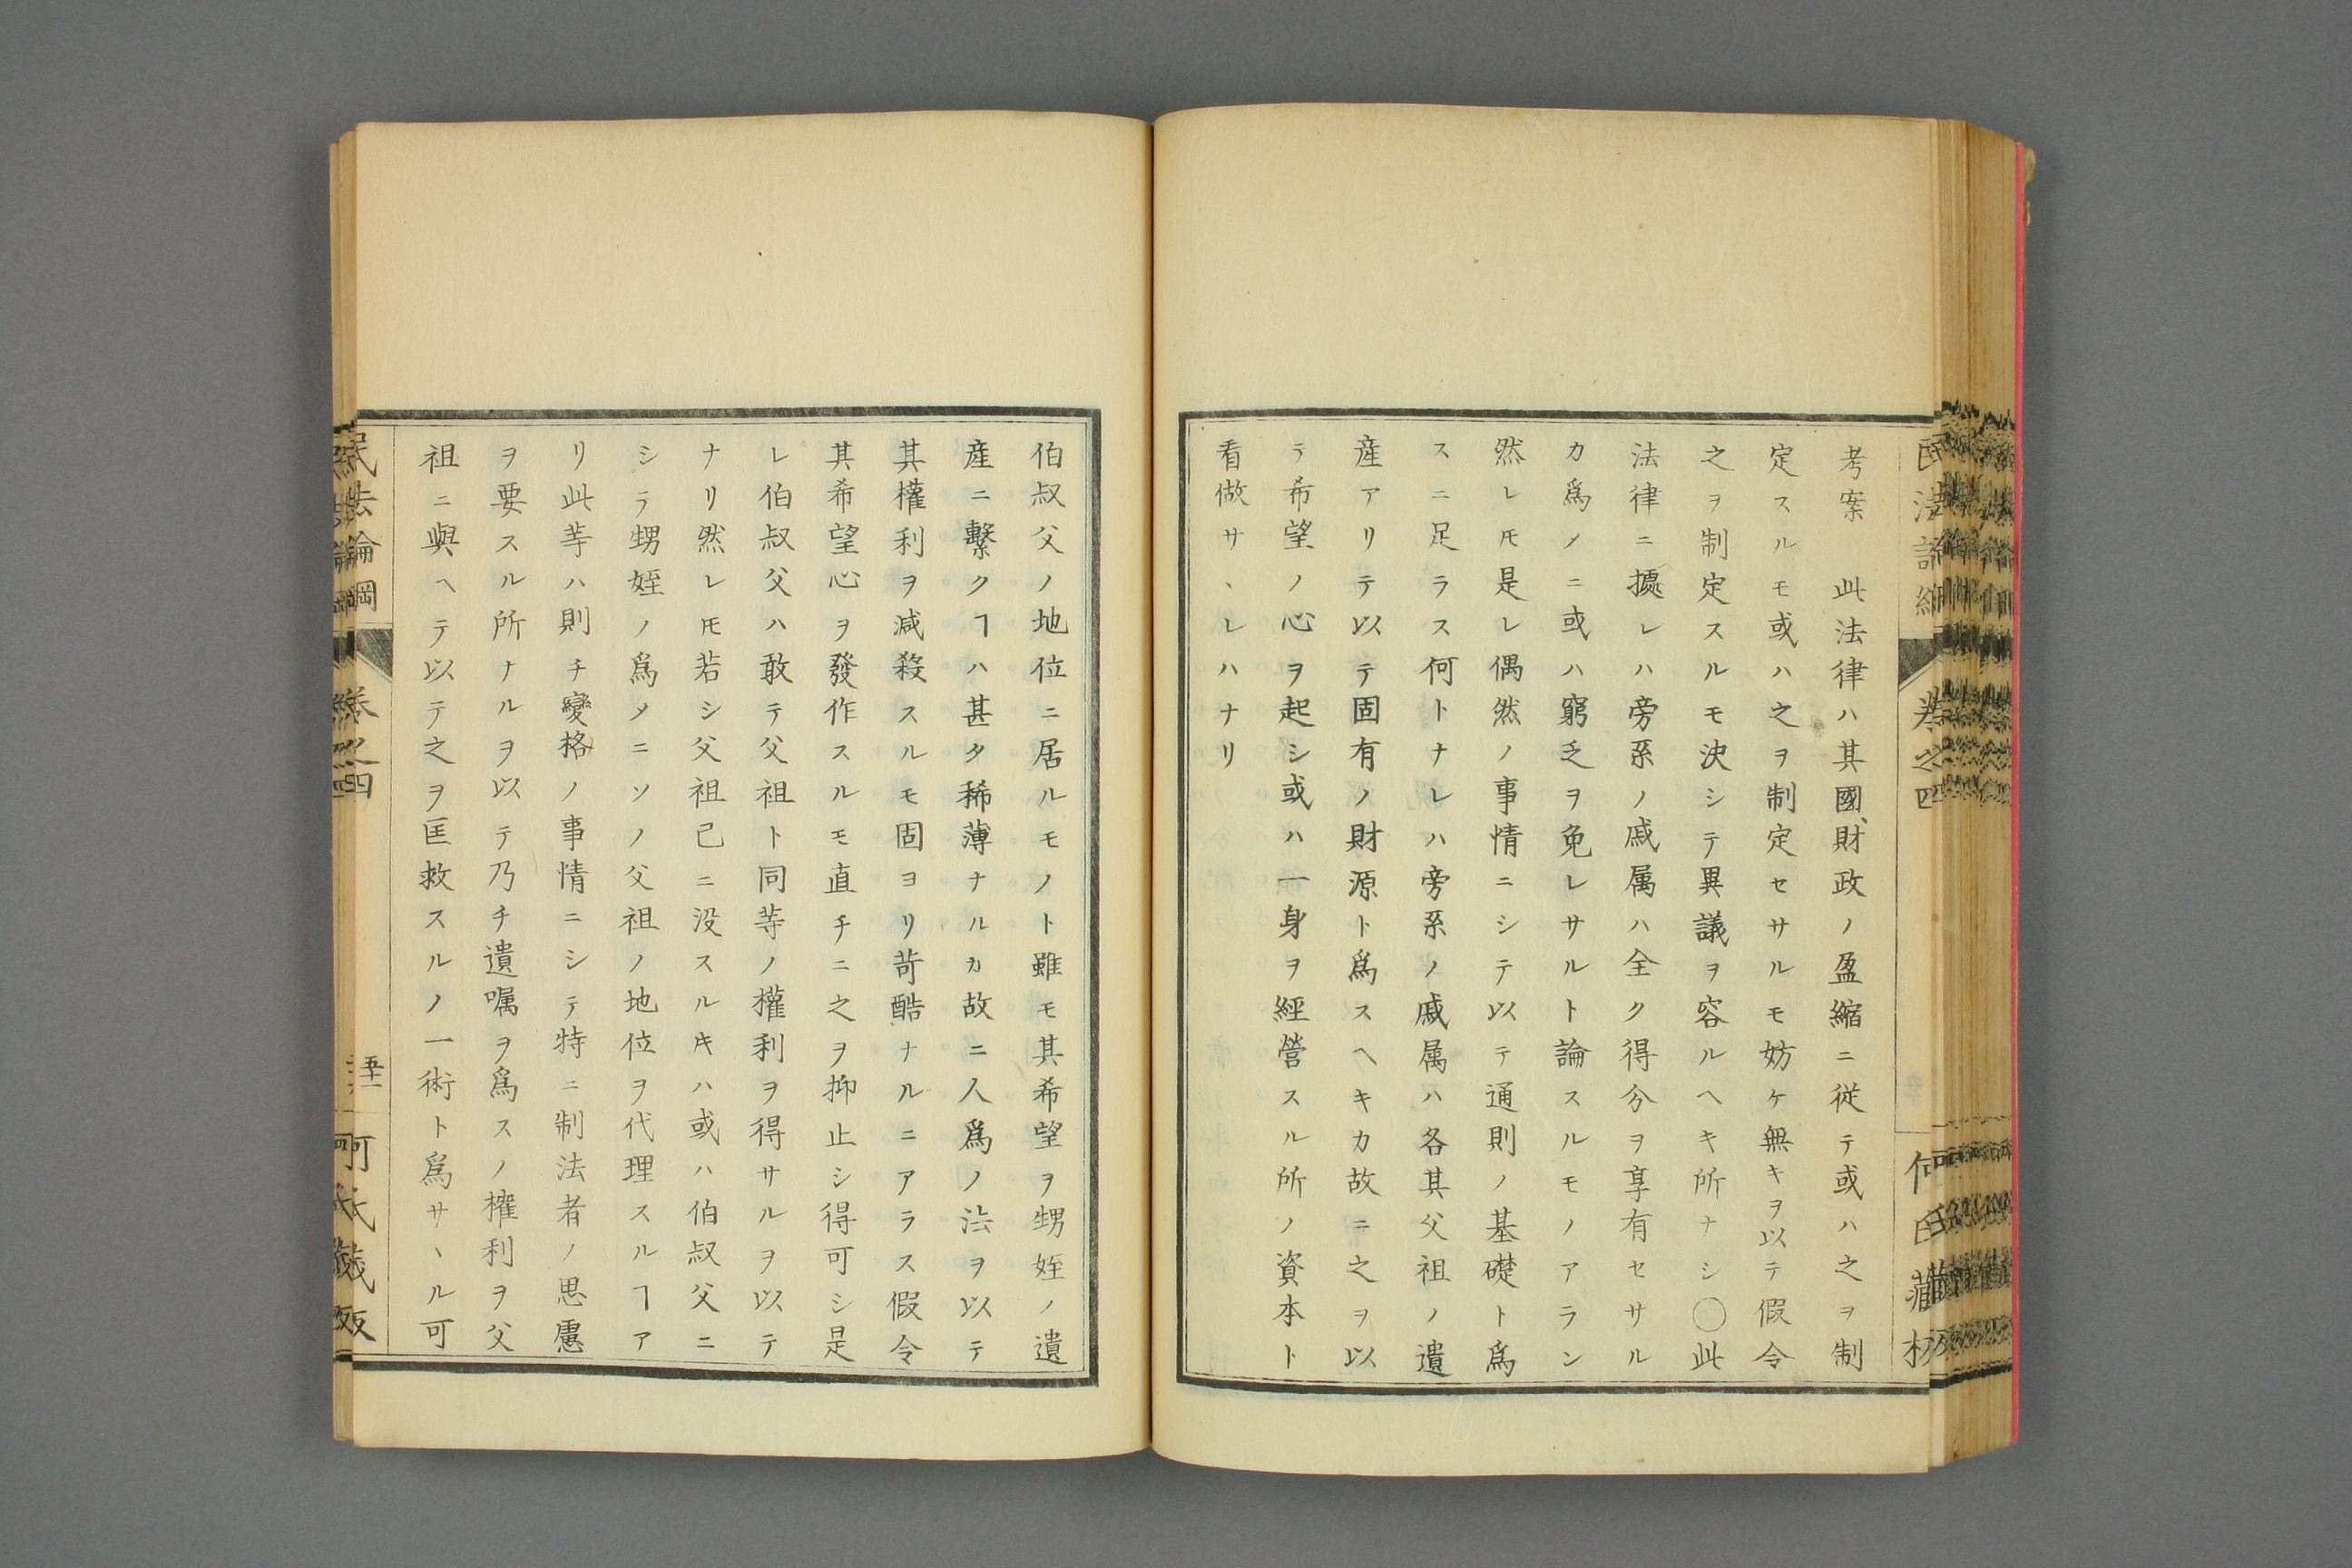 考案　此法律ハ其國財政ノ盈縮ニ従テ或ハ之ヲ制
定スルモ或ハ之ヲ制定セサルモ妨ケ無キヲ以テ假令
之ヲ制定スルモ決シテ異議ヲ容ルヘキ所ナシ〇此
法律ニ據レハ旁系ノ戚属ハ全ク得分ヲ享有セサル
カ爲メニ或ハ窮乏ヲ免レサルト論スルモノアラン
然レ𪜈是レ偶然ノ事情ニシテ以テ通則ノ基礎ト爲
スニ足ラス何トナレハ旁系ノ戚属ハ各其父祖ノ遺
産アリテ以テ固有ノ財源ト爲スヘキカ故ニ之ヲ以
テ希望ノ心ヲ起シ或ハ一身ヲ經營スル所ノ資本ト
看做サヽレハナリ
伯叔父ノ地位ニ居ルモノト雖モ其希望ヲ甥姪ノ遺
産ニ繫クヿハ甚タ稀薄ナルカ故ニ人爲ノ法ヲ以テ
其權利ヲ減殺スルモ固ヨリ苛酷ナルニアラス假令
其希望心ヲ發作スルモ直チニ之ヲ抑止シ得可シ是
レ伯叔父ハ敢テ父祖ト同等ノ權利ヲ得サルヲ以テ
ナリ然レ𪜈若シ父祖已ニ没スル𬼀ハ或ハ伯叔父ニ
シテ甥姪ノ爲メニソノ父祖ノ地位ヲ代理スルヿア
リ此等ハ則チ變格ノ事情ニシテ特ニ制法者ノ思慮
ヲ要スル所ナルヲ以テ乃チ遺嘱ヲ爲スノ權利ヲ父
祖ニ與ヘテ以テ之ヲ匡救スルノ一術ト爲サヽル可
民法論綱　卷之四　五十一　何氏藏版